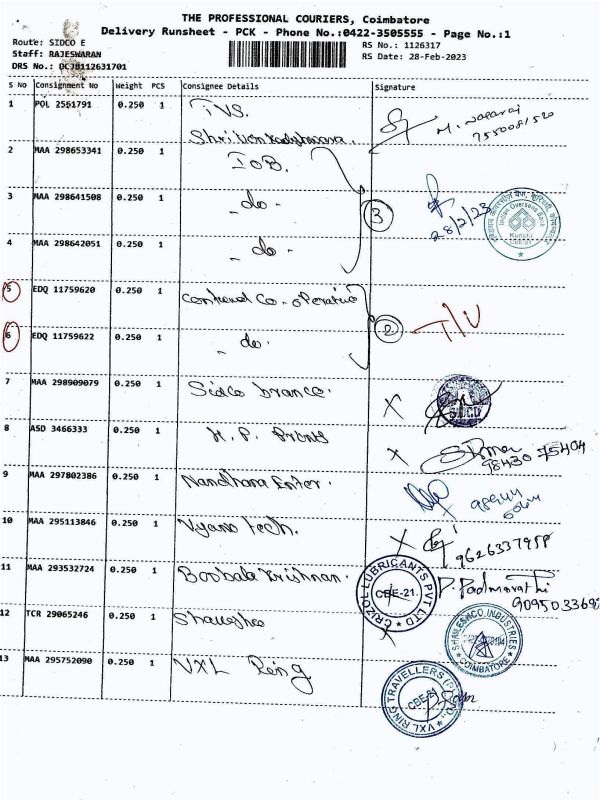 THE PROFESSIONAL COURIERS, Coimbatore
Delivery Runsheet - PCK - Phone No.:0422-3505555 - Page No.:1
Route: SIDCO E
Staff: RAJESWARAN
DRS No.: DCJB112631701
RS No.: 1126317
RS Date: 28-Feb-2023
S No Consignment No Weight PCS Consignee Details Signature
1 POL 2561791 0.250 1 TVS.
2 MAA 298653341 0.250 1 IOB.
3 MAA 298641508 0.250 1 - do - 3 28/2/23
Indian Overseas Bank
4 MAA 298642051 0.250 1 - do -
5 EDQ 11759620 0.250 1 Co-operative
6 EDQ 11759622 0.250 1 - do. 2
7 MAA 298909079 0.250 1 Sidco X
SIDCO
8 ASD 3466333 0.250 1 H.P. Prints X
98430 75404
9 MAA 297802386 0.250 1 Nandhana Enter.
10 MAA 295113846 0.250 1 Tech. X
11 MAA 293532724 0.250 1 P. Padmavathi
CRIZOL LUBRICANTS PVT LTD
CBE-21.
12 TCR 29065246 0.250 1
SHAILESHCO INDUSTRIES
COIMBATORE
13 MAA 295752090 0.250 1 VXL Ring
VXL RING TRAVELLERS
CBE-21